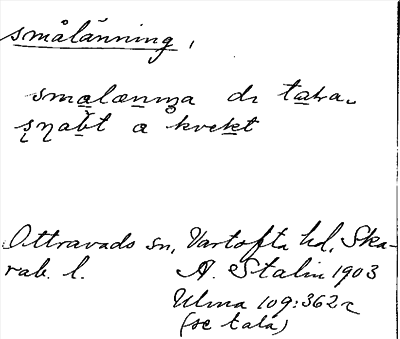 smålänning,
smalænıŋa dr tala
snabt a kvekt
Ottravads sn, Vartofta hd, Ska-
rab. l. A. Stalin 1903
Ulma 109:362r
(se tala)